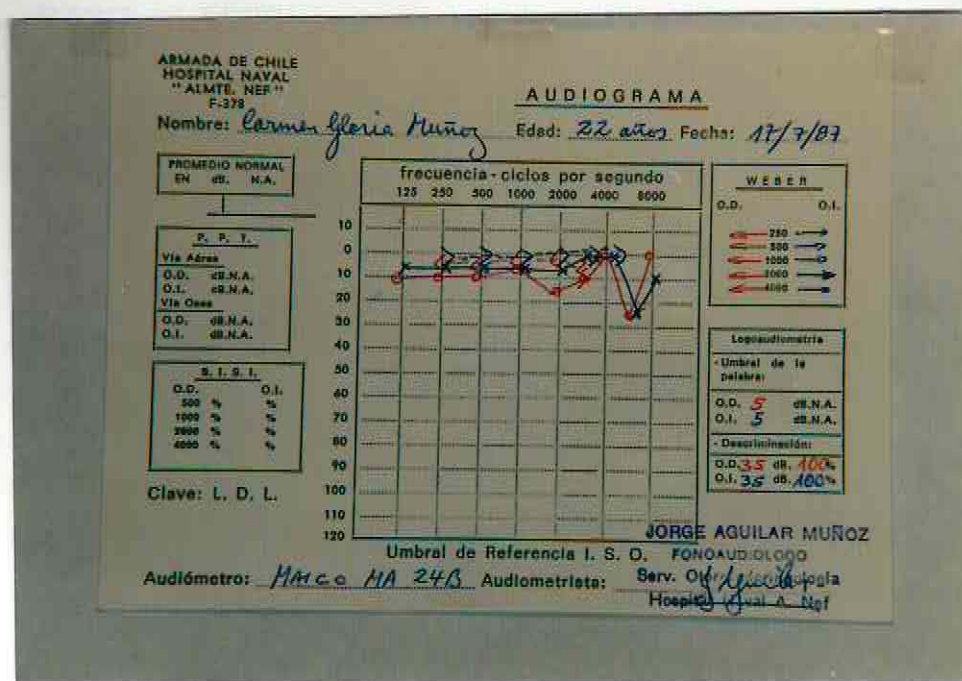 ARMADA DE CHILE
HOSPITAL NAVAL
"ALMTE. NEF"
F-378
AUDIOGRAMA
Nombre: Carmen Gloria Muñoz Edad: 22 años Fecha: 17/7/87
PROMEDIO NORMAL
EN dB. N.A.
P. P. T.
Vía Aérea
O.D. dB.N.A.
O.I. dB.N.A.
Vía Osea
O.D. dB.N.A.
O.I. dB.N.A.
S. I. S. I.
O.D. O.I.
500 % %
1000 % %
2000 % %
4000 % %
Clave: L. D. L.
frecuencia - ciclos por segundo
125 250 500 1000 2000 4000 8000
10
0
10
20
30
40
50
60
70
80
90
100
110
120
Umbral de Referencia I. S. O.
WEBER
O.D. O.I.
250
500
1000
2000
4000
Logoaudiometría
- Umbral de la
palabra:
O.D. 5 dB.N.A.
O.I. 5 dB.N.A.
- Descriminación:
O.D. 35 dB. 100%
O.I. 35 dB. 100%
JORGE AGUILAR MUÑOZ
FONOAUDIOLOGO
Audiómetro: MAICO MA 24B Audiometrista:
Serv.
Hospital Naval A. Nef